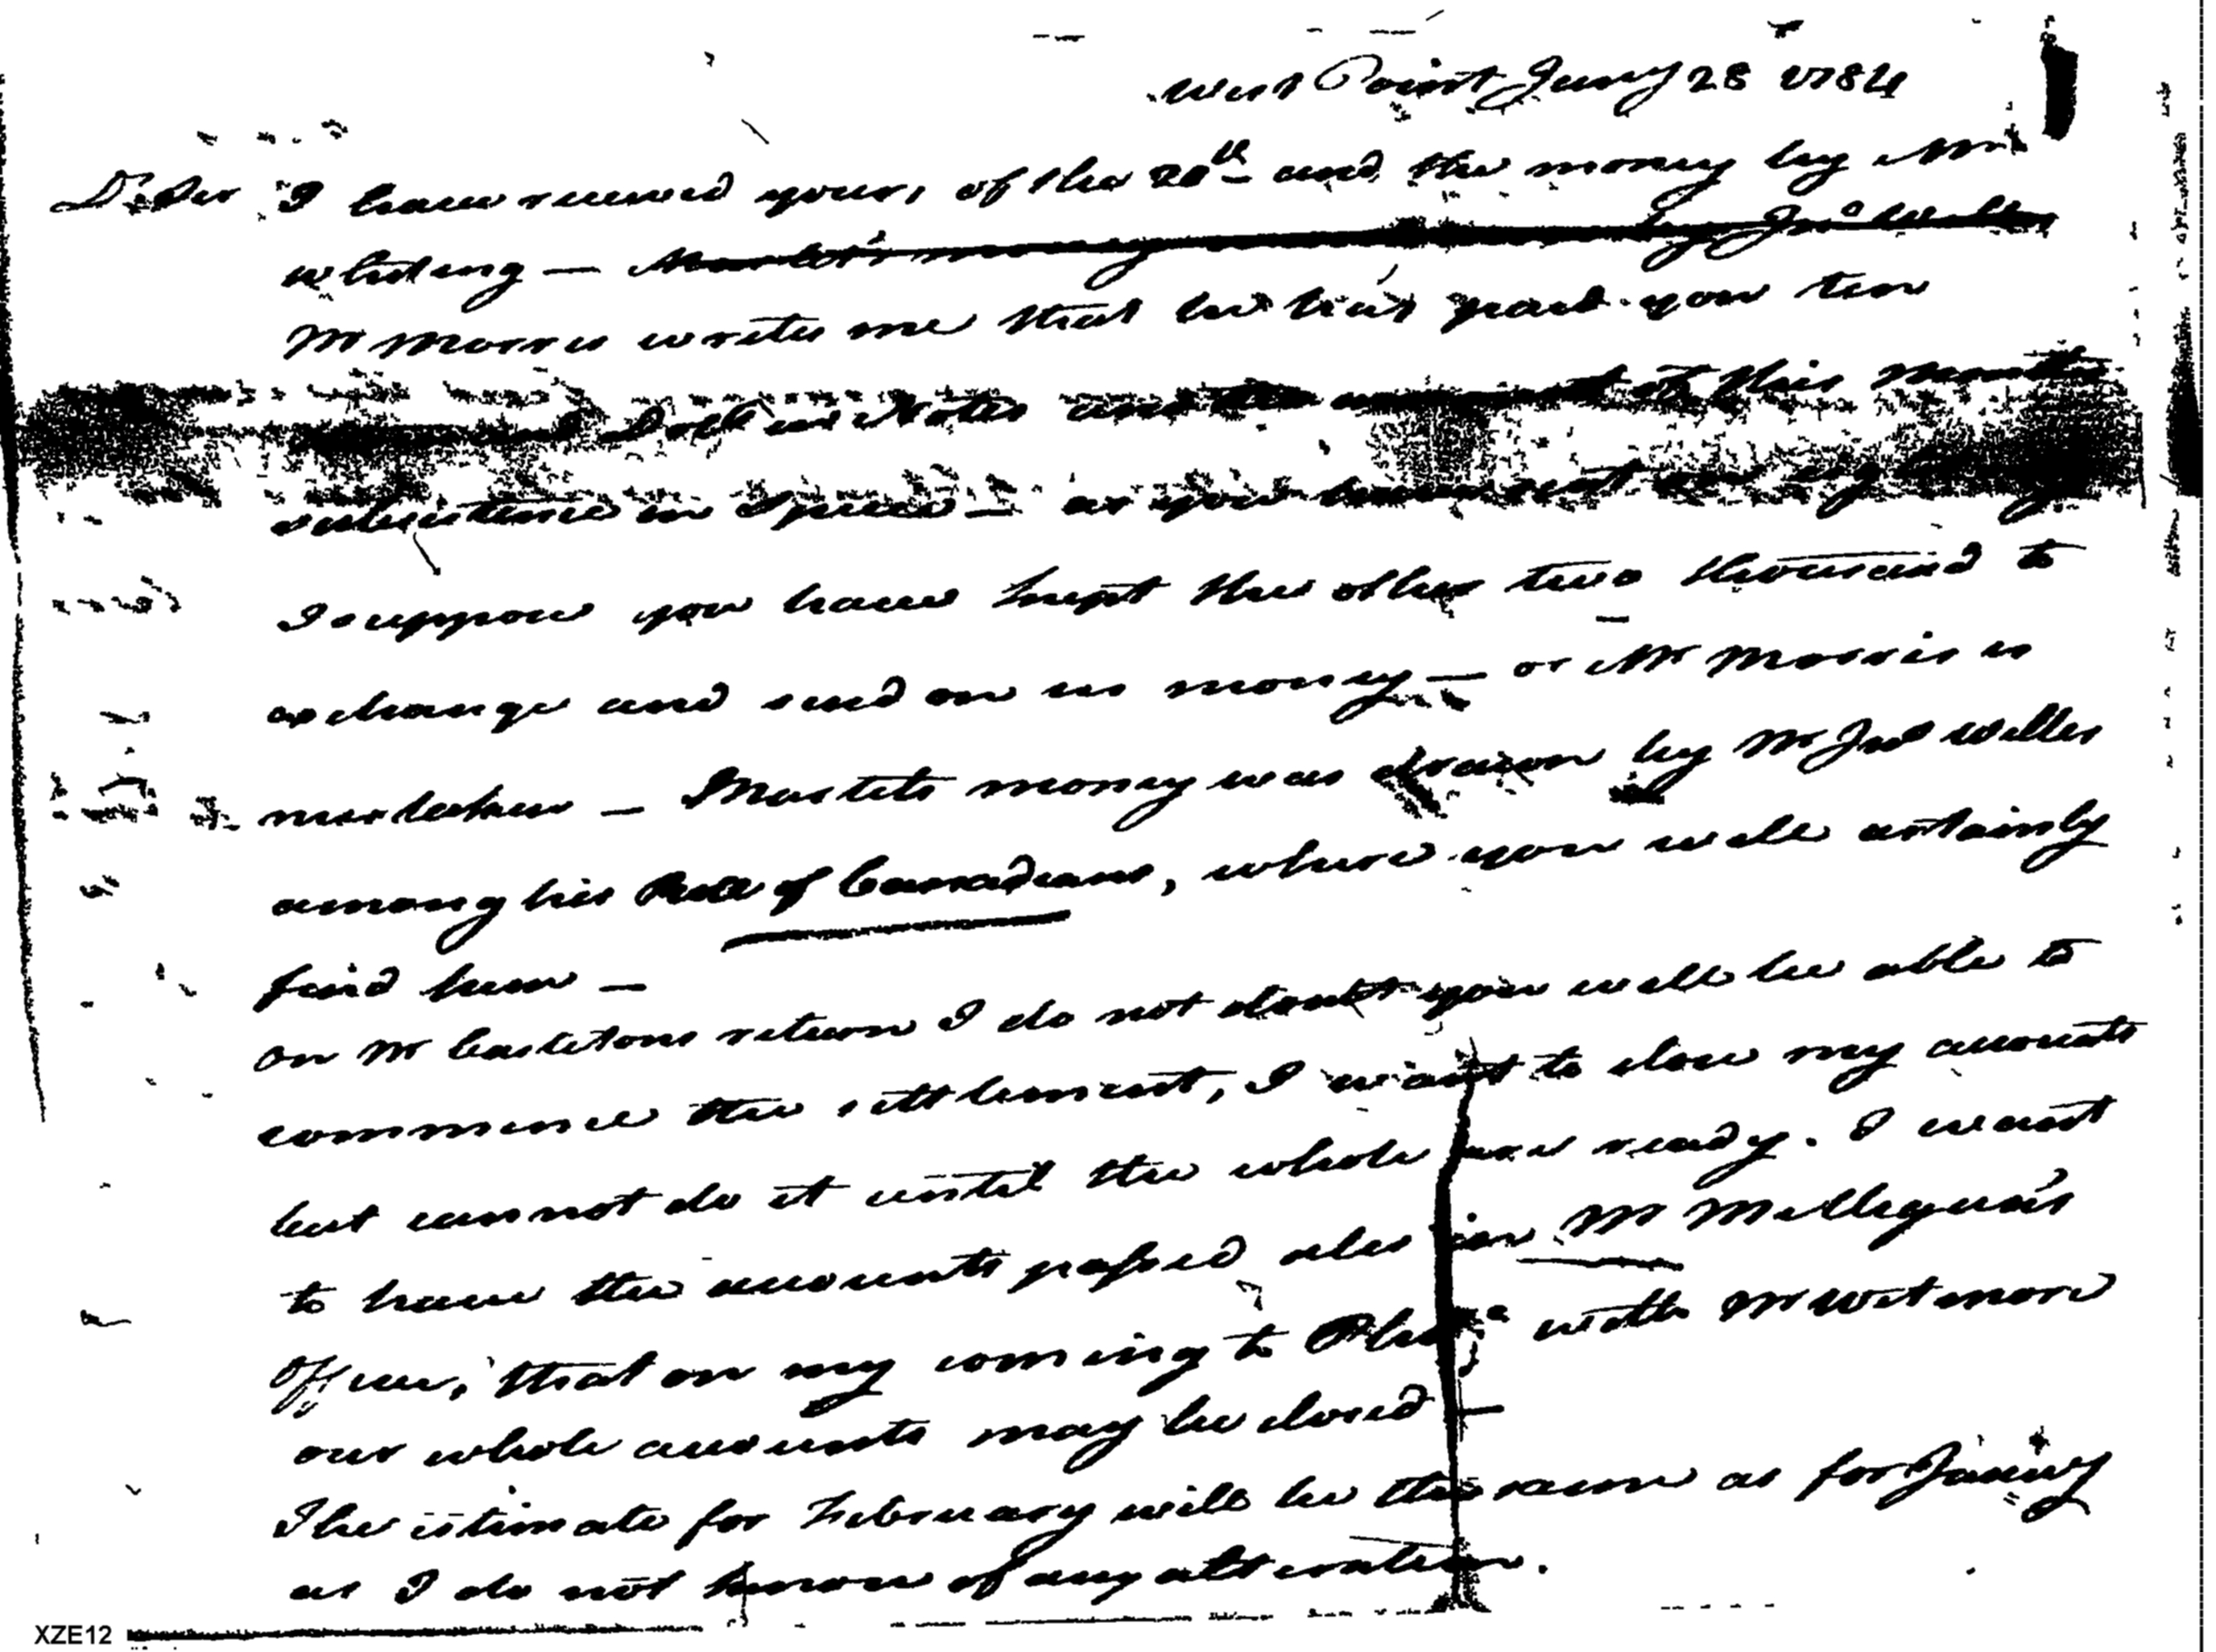 West Point Jany 28 1784
Dr Sir I have received yours of the 20th and the money by Mr
Whiting — money by Jno Wills
Mr Morris writes me that he has paid you ten
Dolls in Notes and the amount of this Months
subsistence in Specie — as you have not
I suppose you have kept the other two thousand to
exchange and send on in money — or Mr Morris is
mistaken — Martets money was drawn by Mr Jno Wills
among his Roll of Canadians, where you will certainly
find him —
On Mr Carletons return I do not doubt you will be able to
commence the settlement, I want to close my accounts
but cannot do it until the whole are ready. I want
to have the accounts passed also in Mr Milligan's
Office, that on my coming to Phila with Mr Wetmore
our whole accounts may be closed —
The estimate for February will be the same as for Jany
as I do not know of any alteration.
XZE12